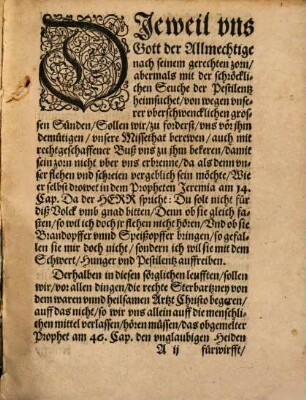 DJeweil vns
Gott der Allmechtige
nach seinem gerechten zorn/
abermals mit der schröckli-
chen Seuche der Pestilentz
heimsuchet/von wegen vnse-
rer vberschwencklichen gros-
sen Sünden/Sollen wir/zu forderst/vns vor jhm
demütigen/vnsere Missethat berewen/auch mit
rechtgeschaffener Buß vns zu jhm bekeren/damit
sein zorn nicht vber vns erbrenne/da als denn vn-
ser flehen vnd schreien vergeblich sein möchte/Wie
er selbst drowet in dem Propheten Jeremia am 14.
Cap. Da der HERR spricht: Du solt nicht für
diß Volck vmb gnad bitten/Denn ob sie gleich fa-
sten/so wil ich doch jr flehen nicht hören/Vnd ob sie
Brandopffer vnnd Speißopffer bringen/so gefal-
len sie mir doch nicht/sondern ich wil sie mit dem
Schwert/Hunger vnd Pestilentz auffreiben.
Derhalben in diesen sörglichen leufften/sollen
wir/vor allen dingen/die rechte Sterbartzney von
dem waren vnnd heilsamen Artzt Christo begeren/
auff das nicht/so wir vns allein auff die menschli-
chen mittel verlassen/hören müssen/das obgemelter
Prophet am 46. Cap. den vnglaubigen Heiden
A ij fürwirfft/